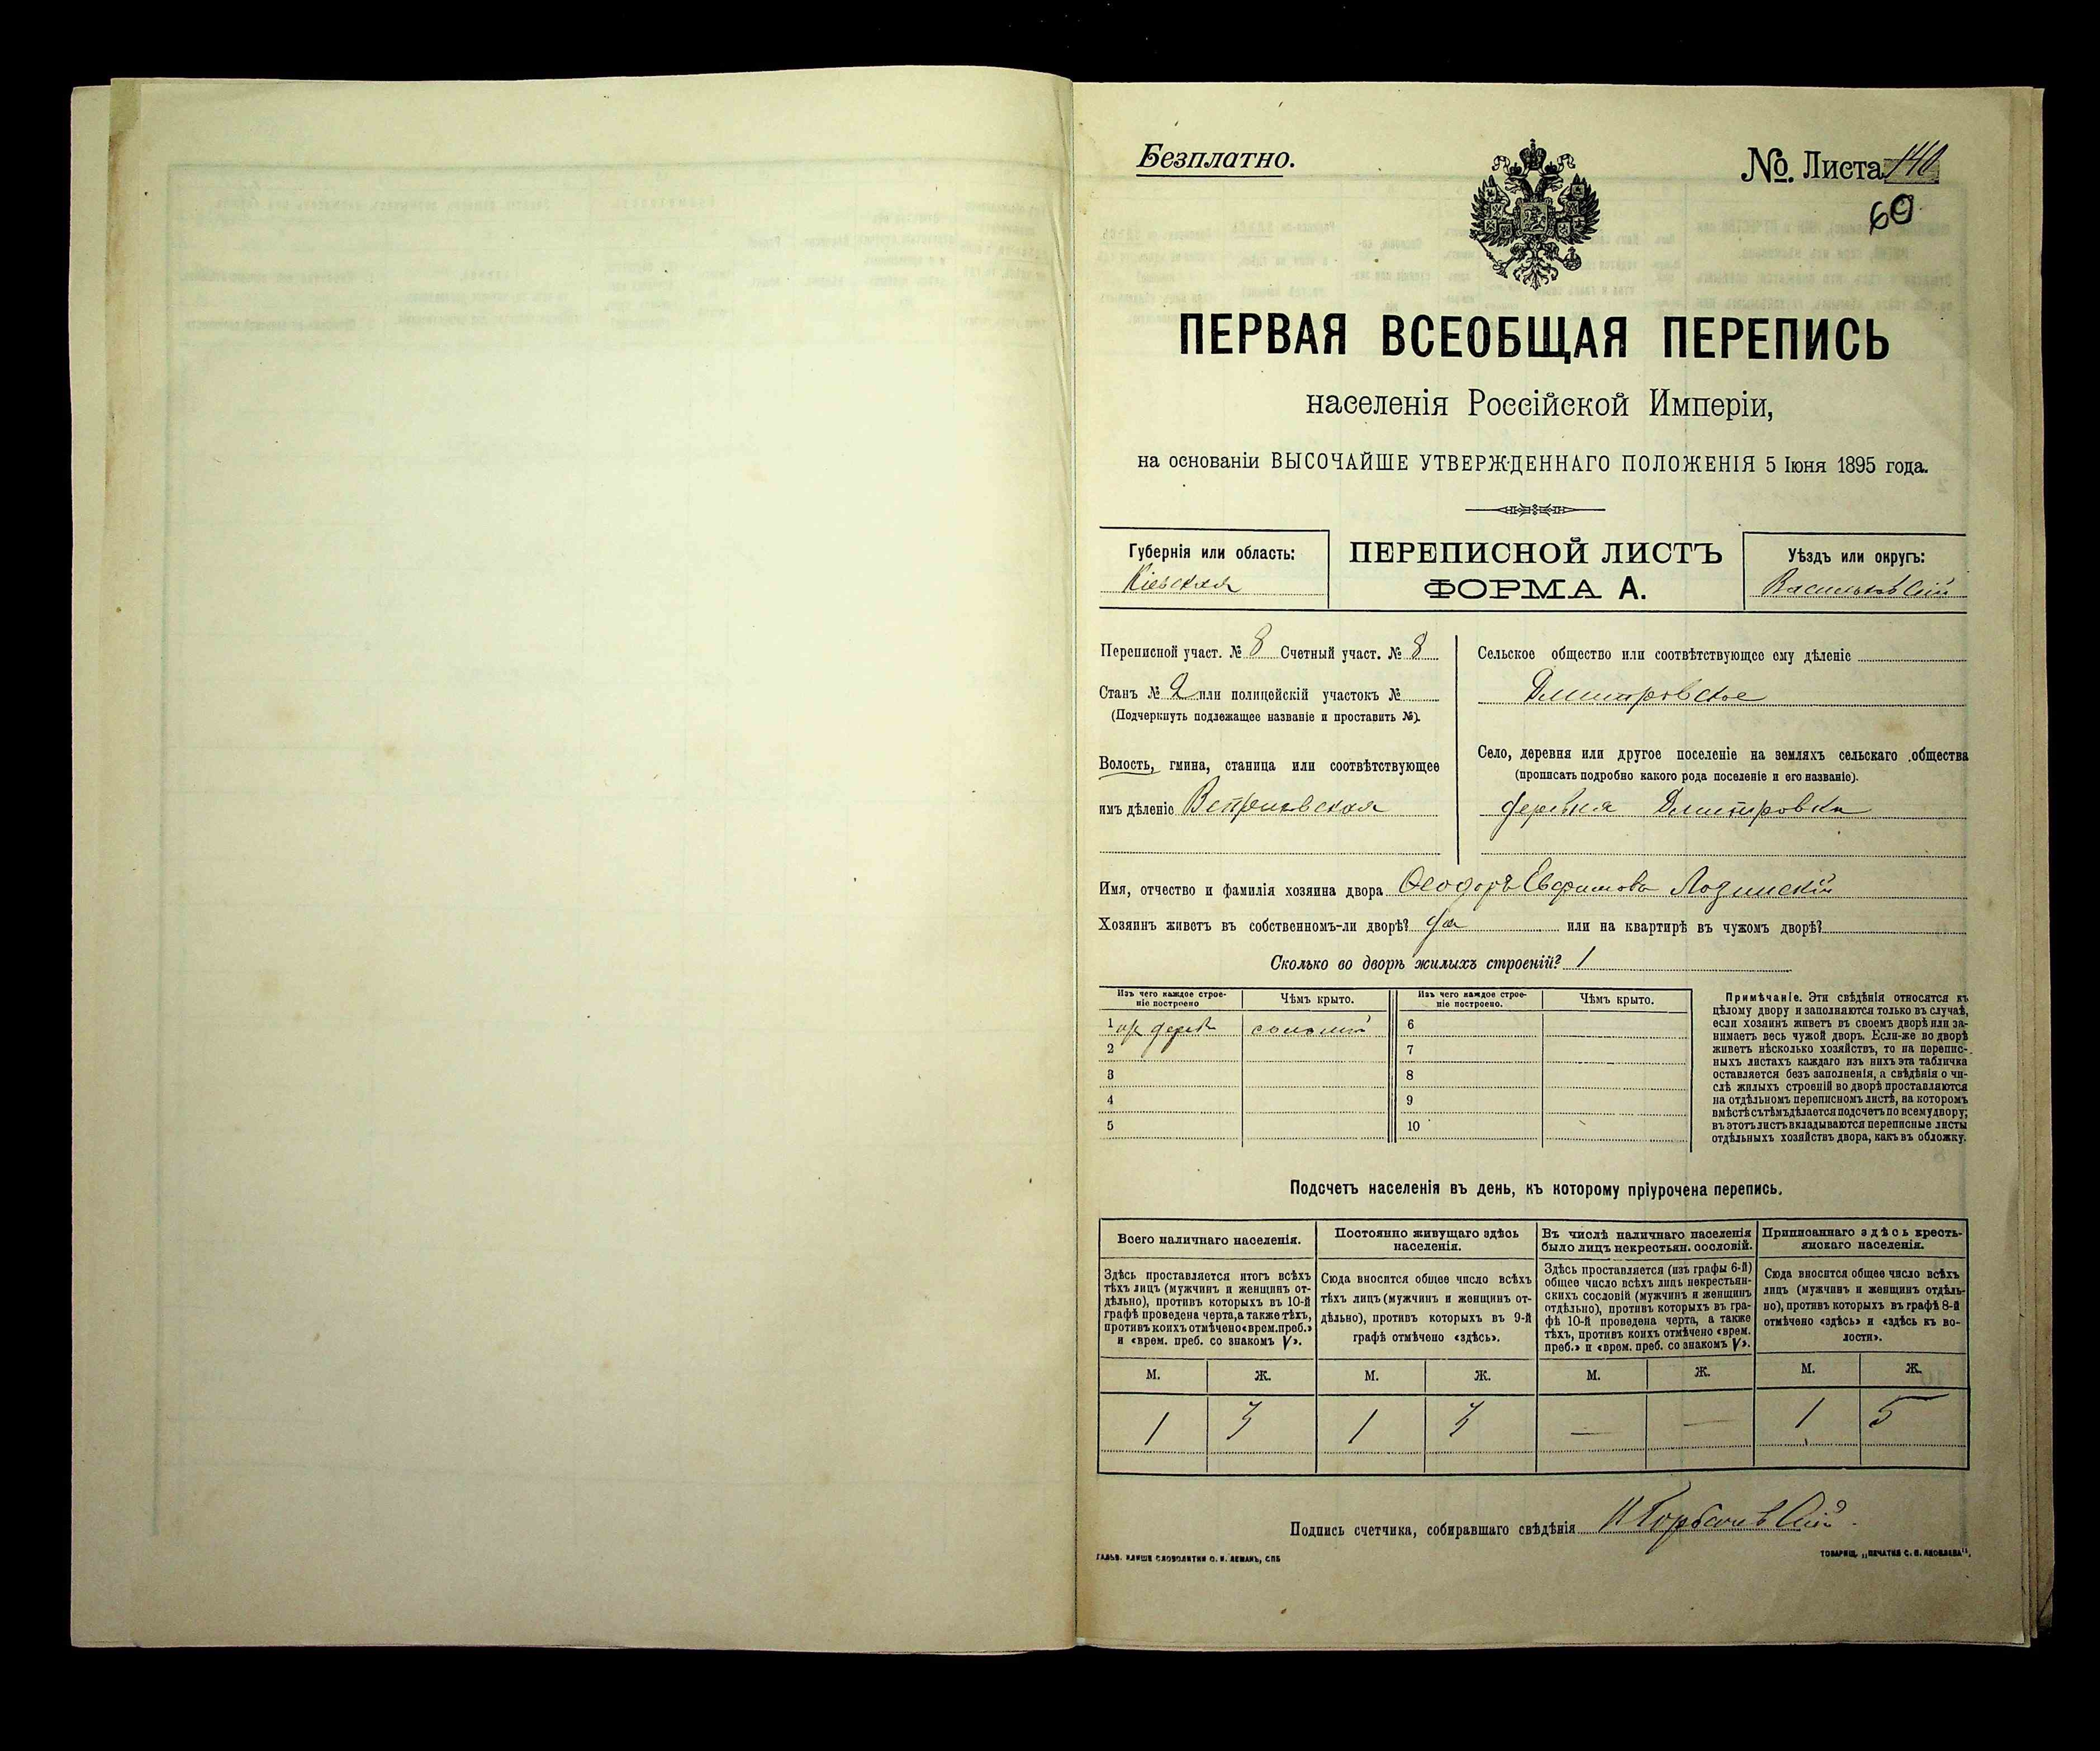 Безплатно.
№. Листа 140
60
ПЕРВАЯ ВСЕОБЩАЯ ПЕРЕПИСЬ
населенія Россійской Имперіи,
на основаніи ВЫСОЧАЙШЕ УТВЕРЖДЕННАГО ПОЛОЖЕНІЯ 5 Іюня 1895 года.
Губернія или область:
Кіевская
ПЕРЕПИСНОЙ ЛИСТЪ
ФОРМА А.
Уѣздъ или округъ:
Васильковскій
Переписной участ. № 8 Счетный участ. № 8
Станъ № 2 или полицейскій участокъ №
(Подчеркнуть подлежащее названіе и проставить №).
Волость, гмина, станица или соотвѣтствующее
имъ дѣленіе
Сельское общество или соотвѣтствующее ему дѣленіе
Дмитровское
Село, деревня или другое поселеніе на земляхъ сельскаго общества
(прописать подробно какого рода поселеніе и его названіе).
деревня Дмитровка
Имя, отчество и фамилія хозяина двора Ѳеодоръ Евфимовъ Лозинскій
Хозяинъ живетъ въ собственномъ-ли дворѣ? да или на квартирѣ въ чужомъ дворѣ?
Сколько во дворѣ жилыхъ строеній? 1
Изъ чего каждое строе-
ніе построено
Чѣмъ крыто.
Изъ чего каждое строе-
ніе построено.
Чѣмъ крыто.
1 дерев 6
2 7
3 8
4 9
5 10
Примѣчаніе. Эти свѣдѣнія относятся къ
цѣлому двору и заполняются только въ случаѣ,
если хозяинъ живетъ въ своемъ дворѣ или за-
нимаетъ весь чужой дворъ. Если-же во дворѣ
живетъ нѣсколько хозяйствъ, то на перепис-
ныхъ листахъ каждаго изъ нихъ эта табличка
оставляется безъ заполненія, а свѣдѣнія о чи-
слѣ жилыхъ строеній во дворѣ проставляются
на отдѣльномъ переписномъ листѣ, на которомъ
вмѣстѣ съ тѣмъ дѣлается подсчетъ по всему двору;
въ этотъ листъ вкладываются переписные листы
отдѣльныхъ хозяйствъ двора, какъ въ обложку.
Подсчетъ населенія въ день, къ которому пріурочена перепись.
Всего наличнаго населенія.
Здѣсь проставляется итогъ всѣхъ
тѣхъ лицъ (мужчинъ и женщинъ от-
дѣльно), противъ которыхъ въ 10-й
графѣ проведена черта, а также тѣхъ,
противъ коихъ отмѣчено «врем. преб.»
и «врем. преб. со знакомъ V».
Постоянно живущаго здѣсь
населенія.
Сюда вносится общее число всѣхъ
тѣхъ лицъ (мужчинъ и женщинъ от-
дѣльно), противъ которыхъ въ 9-й
графѣ отмѣчено «здѣсь».
Въ числѣ наличнаго населенія
было лицъ некрестьян. сословій.
Здѣсь проставляется (изъ графы 6-й)
общее число всѣхъ лицъ некрестьян-
скихъ сословій (мужчинъ и женщинъ
отдѣльно), противъ которыхъ въ гра-
фѣ 10-й проведена черта, а также
тѣхъ, противъ коихъ отмѣчено «врем.
преб.» и «врем. преб. со знакомъ V».
Приписаннаго здѣсь кресть-
янскаго населенія.
Сюда вносится общее число всѣхъ
лицъ (мужчинъ и женщинъ отдѣль-
но), противъ которыхъ въ графѣ 8-й
отмѣчено «здѣсь» и «здѣсь къ во-
лости».
М. Ж. М. Ж. М. Ж. М. Ж.
1 3 1 3 — — 1 5
Подпись счетчика, собиравшаго свѣдѣнія
ГАЛЬВ. КЛИШЕ СЛОВОЛИТНИ О. И. ЛЕМАНЪ, СПБ
ТОВАРИЩ. „ПЕЧАТНЯ С. П. ЯКОВЛЕВА“.